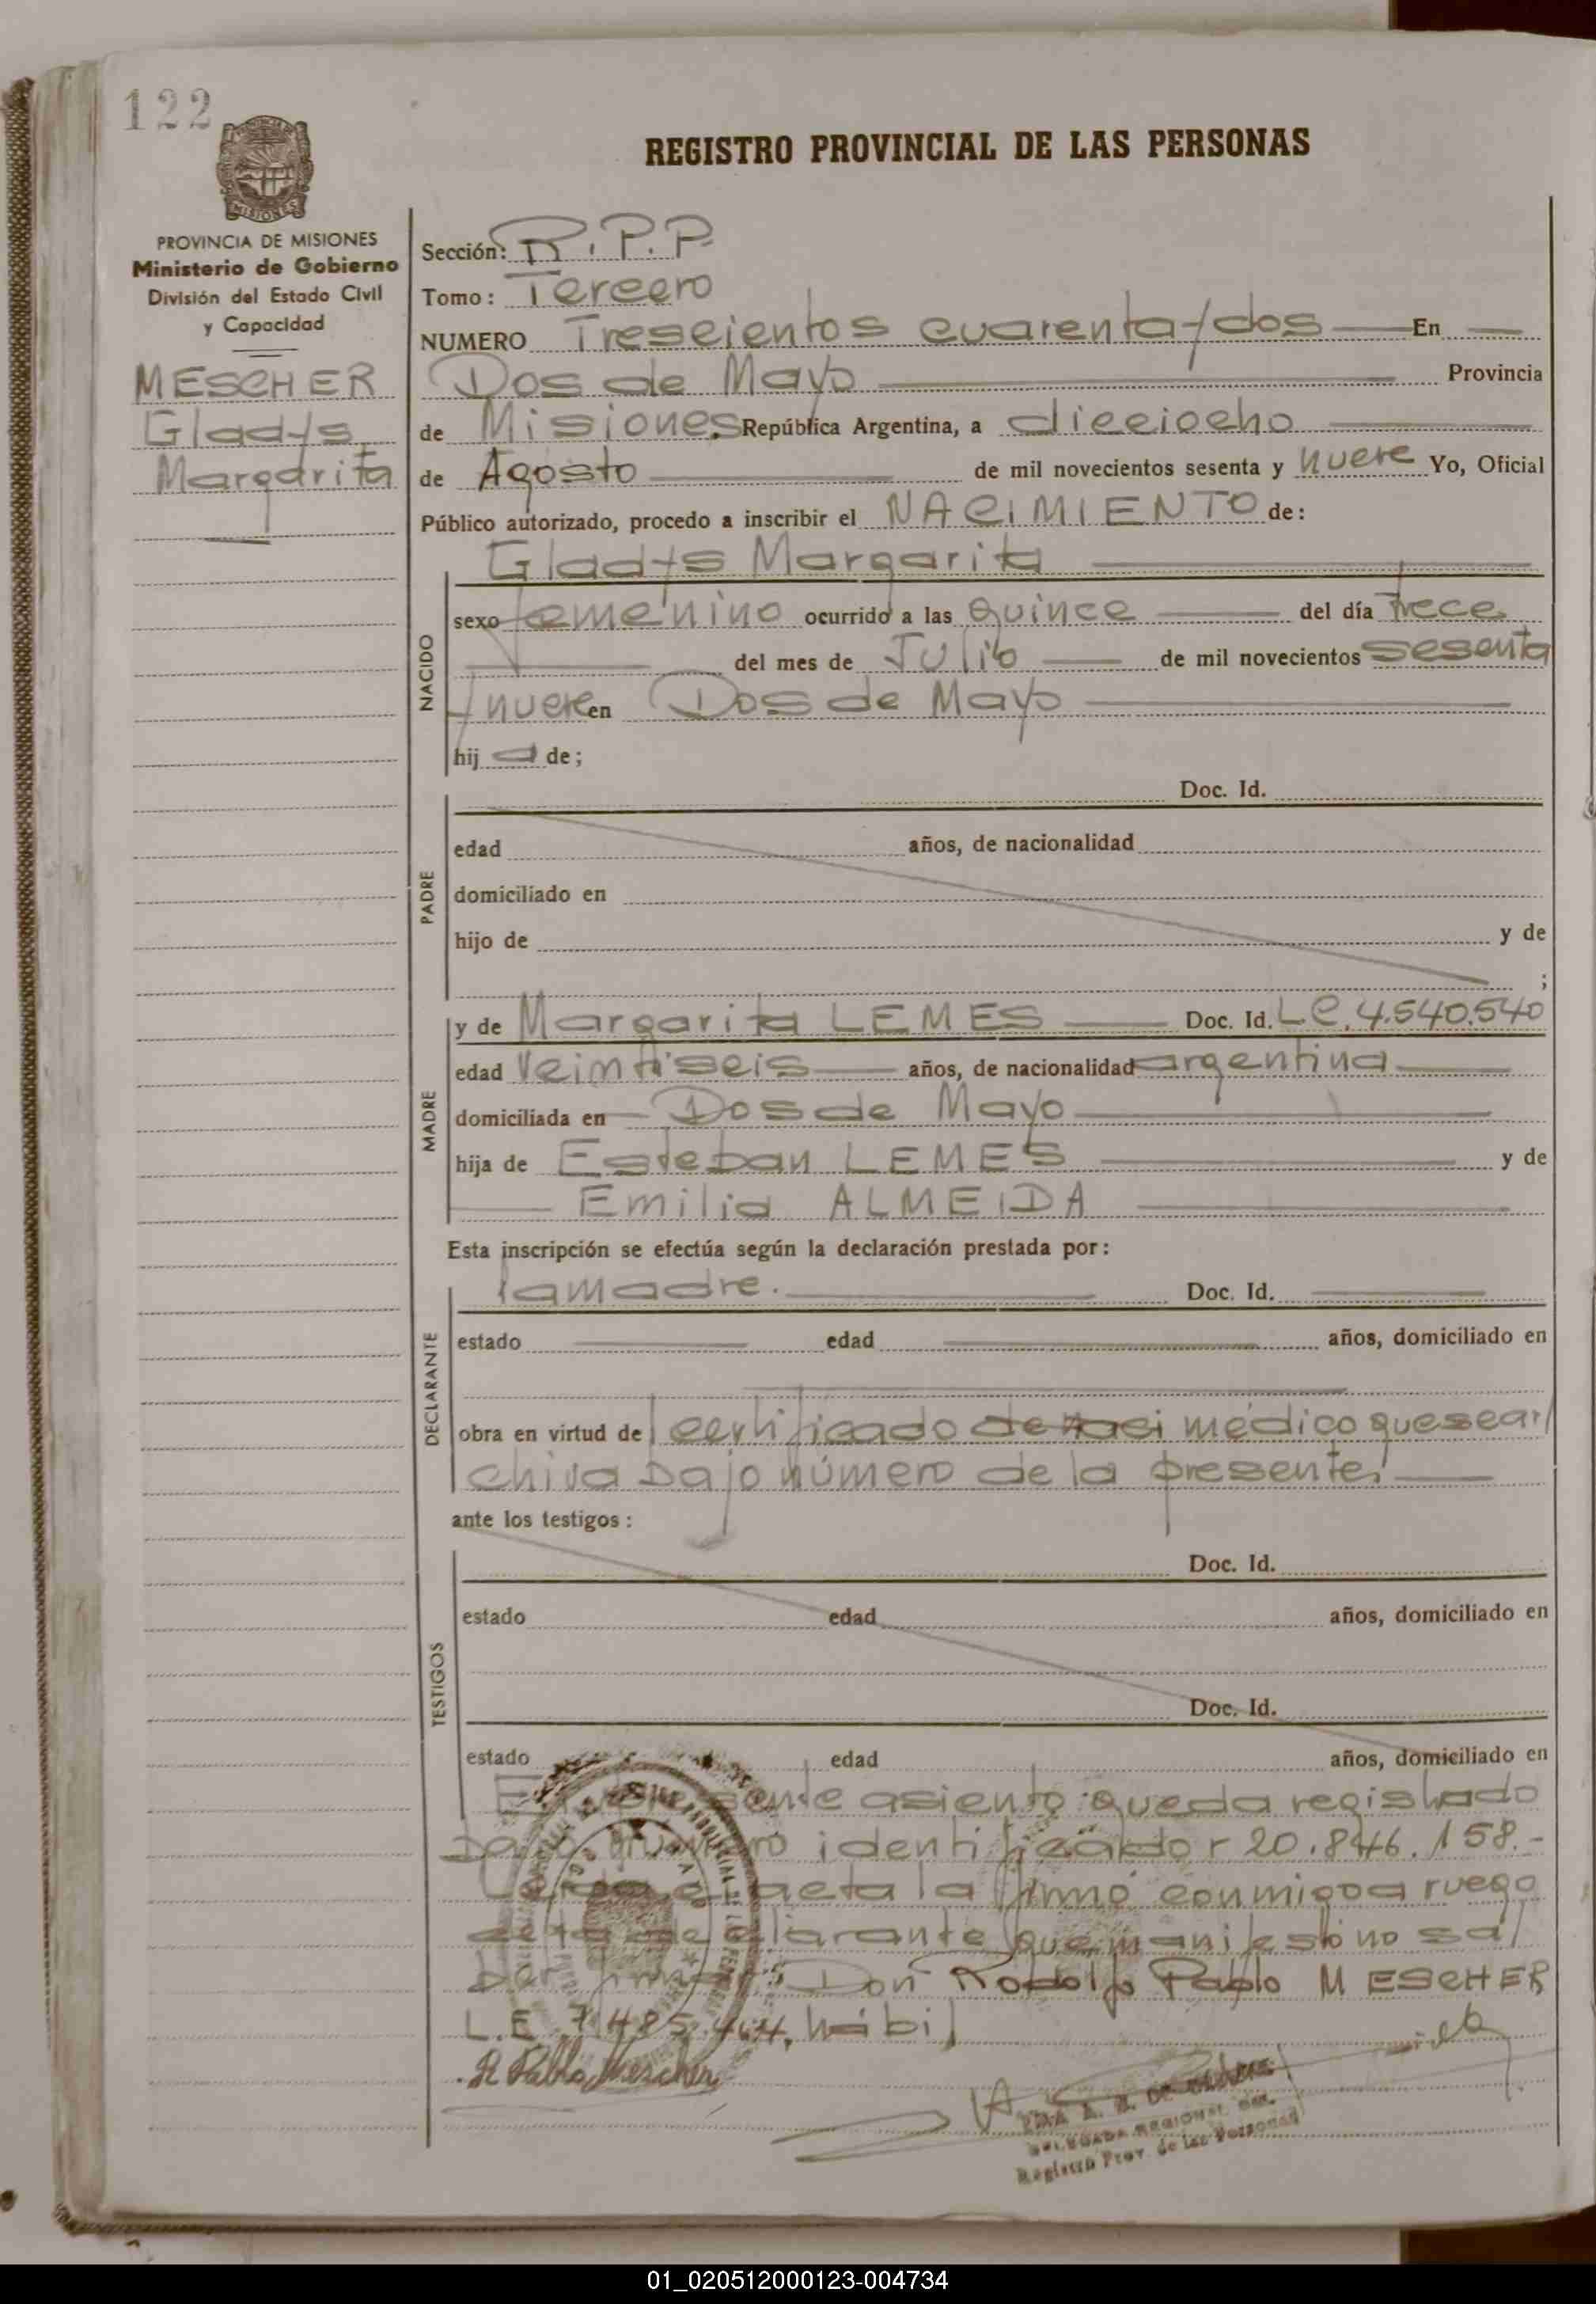 122
REGISTRO PROVINCIAL DE LAS PERSONAS
PROVINCIA DE MISIONES
Ministerio de Gobierno
División del Estado Civil
y Capacidad
MESCHER
Gladys
Margarita
Sección: R.P.P.
Tomo: Tercero
NUMERO Trescientos cuarenta y dos En
Dos de Mayo Provincia
de Misiones. República Argentina, a dieciocho
de Agosto de mil novecientos sesenta y nueve Yo, Oficial
Público autorizado, procedo a inscribir el NACIMIENTO de:
Gladys Margarita
NACIDO
sexo femenino ocurrido a las quince del día trece
del mes de Julio de mil novecientos sesenta
y nueve en Dos de Mayo
hij a de;
PADRE
Doc. Id.
edad años, de nacionalidad
domiciliado en
hijo de y de
;
MADRE
y de Margarita LEMES Doc. Id. L.C. 4.540.540
edad veintiseis años, de nacionalidad argentina
domiciliada en Dos de Mayo
hija de Esteban LEMES y de
Emilia ALMEIDA
Esta inscripción se efectúa según la declaración prestada por:
DECLARANTE
la madre. Doc. Id.
estado edad años, domiciliado en
obra en virtud de certificado de naci médico que se ar/
chiva bajo número de la presente.
ante los testigos:
TESTIGOS
Doc. Id.
estado edad años, domiciliado en
Doc. Id.
estado edad años, domiciliado en
asiento queda registrado
identificador 20.846.158.-
acta la firmó conmigo a ruego
que manifestó no sa/
Don Rodolfo Pablo MESCHER
L.E. 7.485.464. hábil
R Pablo Mescher
DELEGADA REGIONAL DEL
Registro Prov. de las Personas
01_020512000123-004734